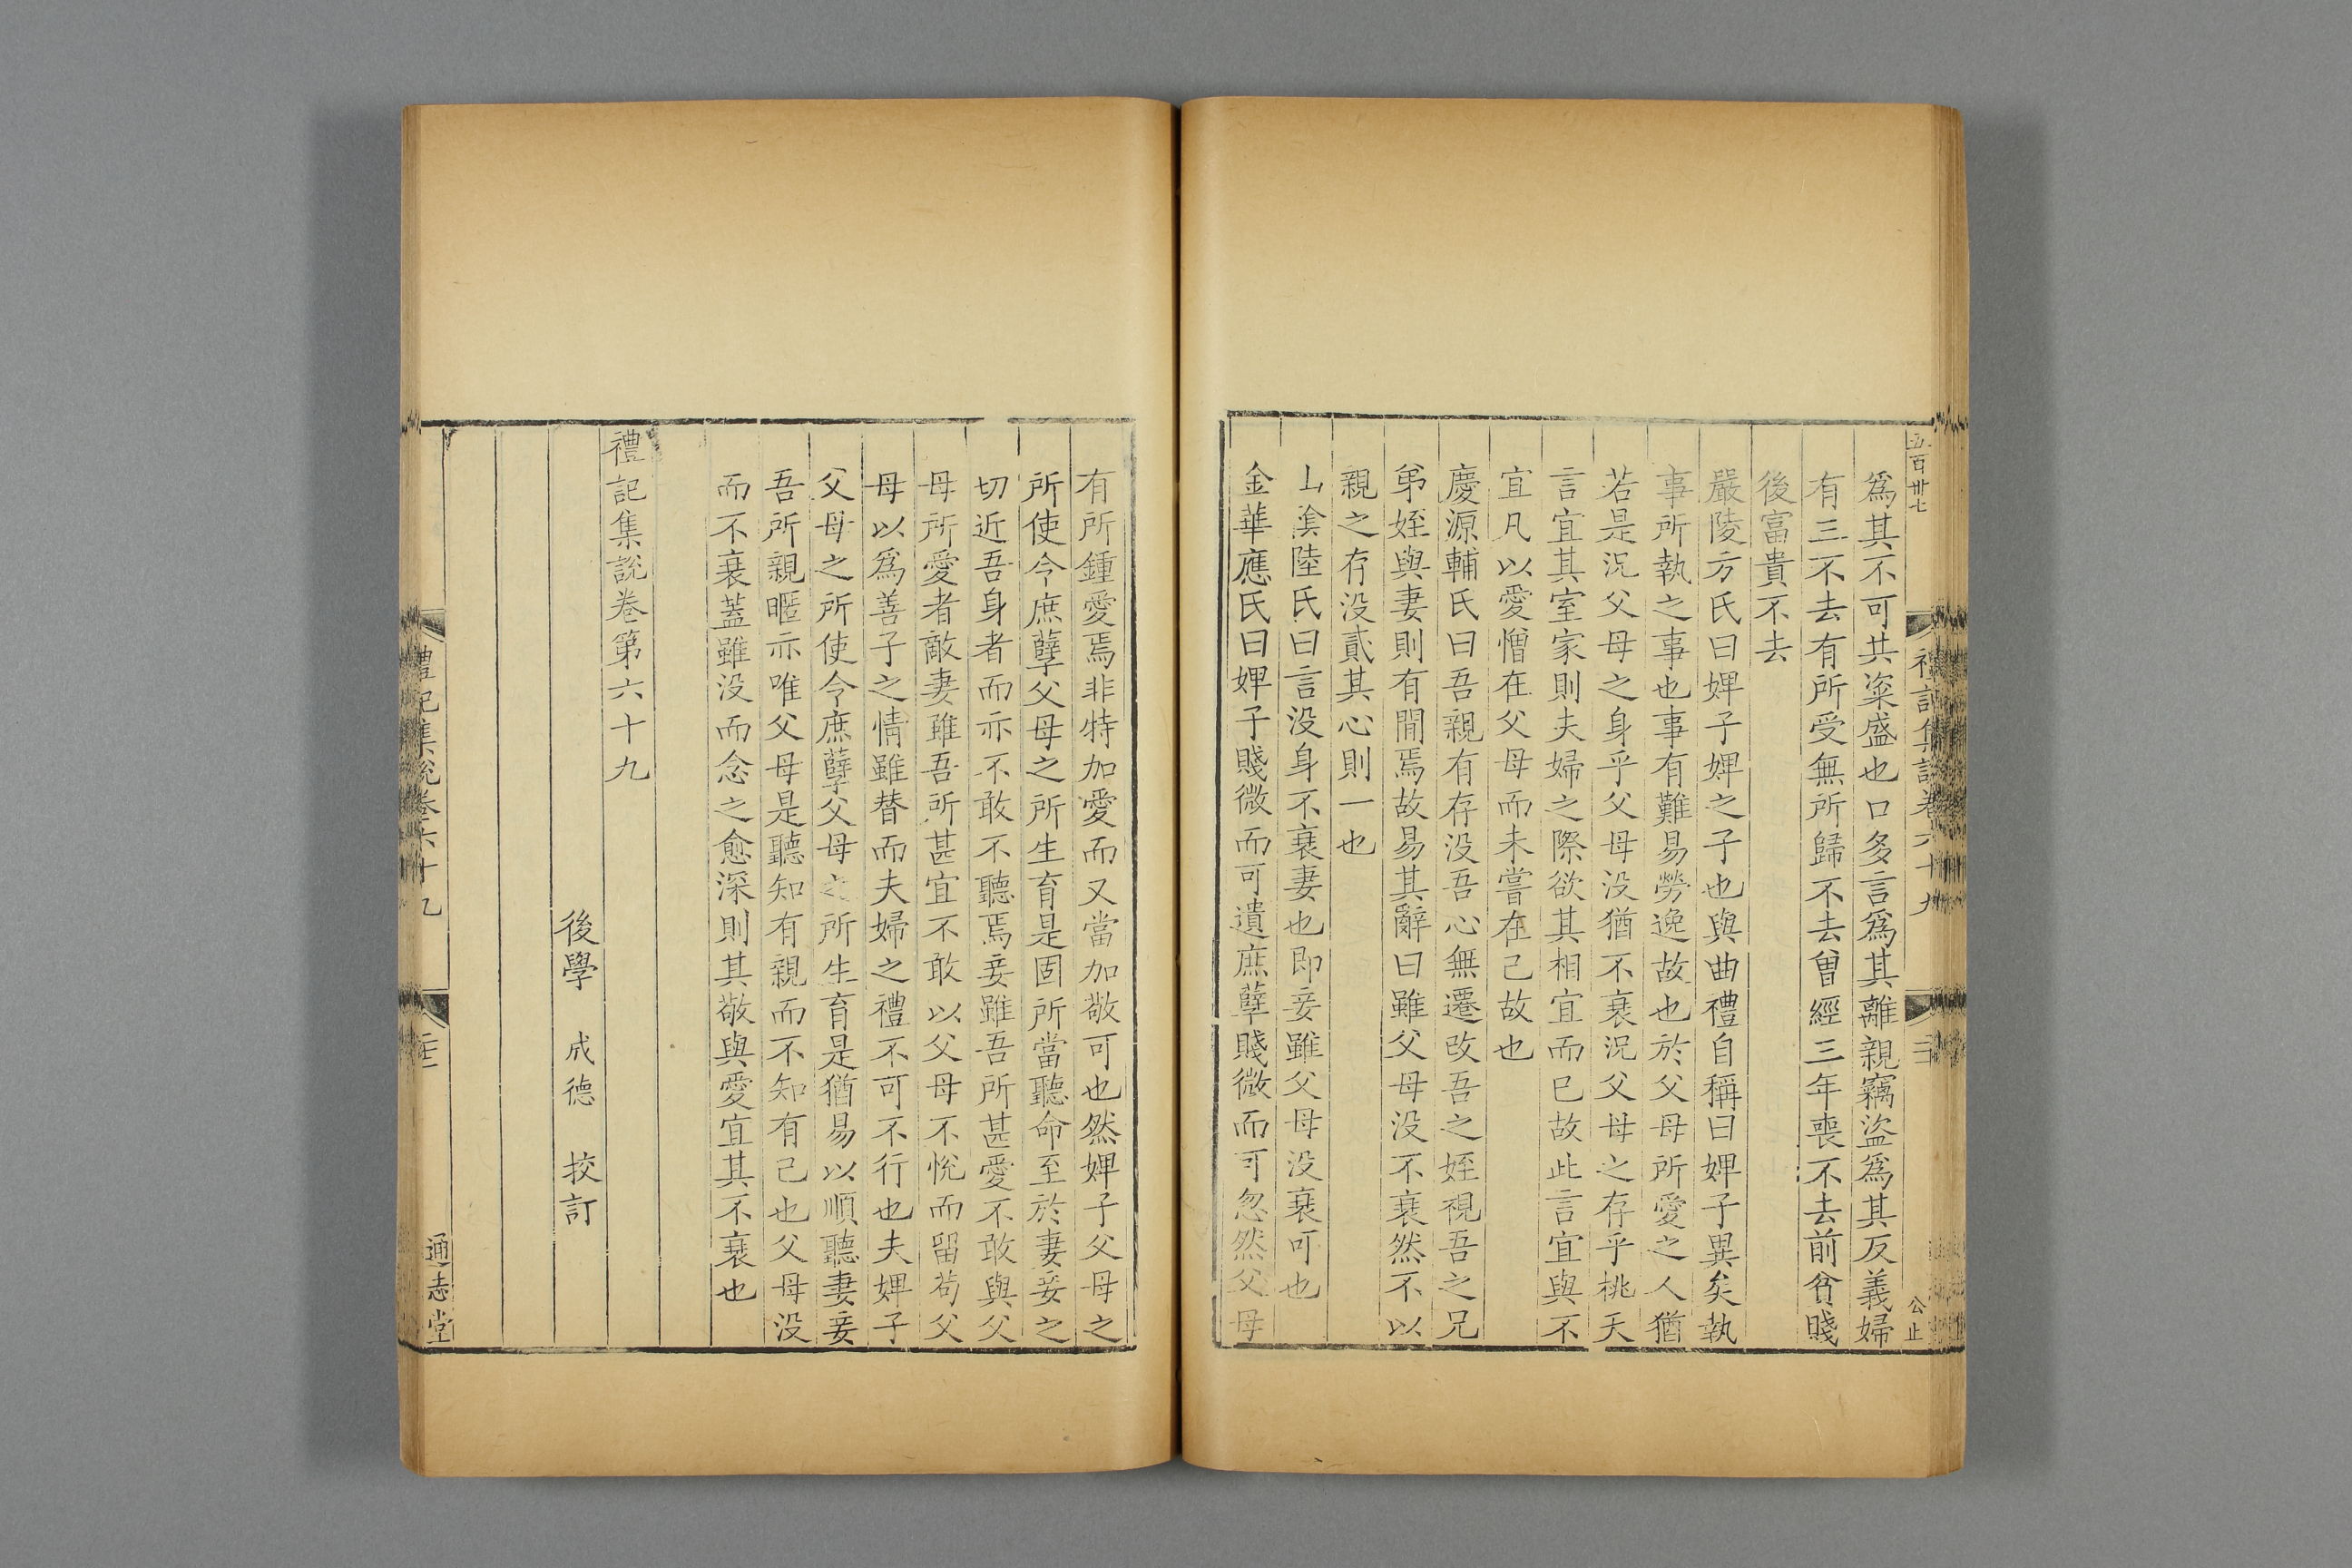 五百卅七
爲其不可共粢盛也口多言爲其離親竊盜爲其反義婦
有三不去有所受無所歸不去曾經三年喪不去前貧賤
後富貴不去
嚴陵方氏曰婢子婢之子也與曲禮自稱曰婢子異矣執
事所執之事也事有難易勞逸故也於父母所愛之人猶
若是況父母之身乎父母没猶不衰況父母之存乎桃夭
言宜其室家則夫婦之際欲其相宜而已故此言宜與不
宜凡以愛憎在父母而未嘗在己故也
慶源輔氏曰吾親有存没吾心無遷改吾之姪視吾之兄
弟姪與妻則有間焉故易其辭曰雖父母没不衰然不以
親之存没貳其心則一也
山陰陸氏曰言没身不衰妻也即妾雖父母没衰可也
金華應氏曰婢子賤微而可遺庶孽賤微而可忽然父母
禮記集說卷六十九
公止
有所鍾愛焉非特加愛而又當加敬可也然婢子父母之
所使令庶孽父母之所生育是固所當聽命至於妻妾之
切近吾身者而亦不敢不聽焉妾雖吾所甚愛不敢與父
母所愛者敵妻雖吾所甚宜不敢以父母不悅而留苟父
母以爲善子之情雖替而夫婦之禮不可不行也夫婢子
父母之所使令庶孽父母之所生育是猶易以順聽妻妾
吾所親暱亦唯父母是聽知有親而不知有己也父母没
而不衰蓋雖没而念之愈深則其敬與愛宜其不衰也
禮記集說卷第六十九
後學　成德　挍訂
禮記集說卷六十九
通志堂